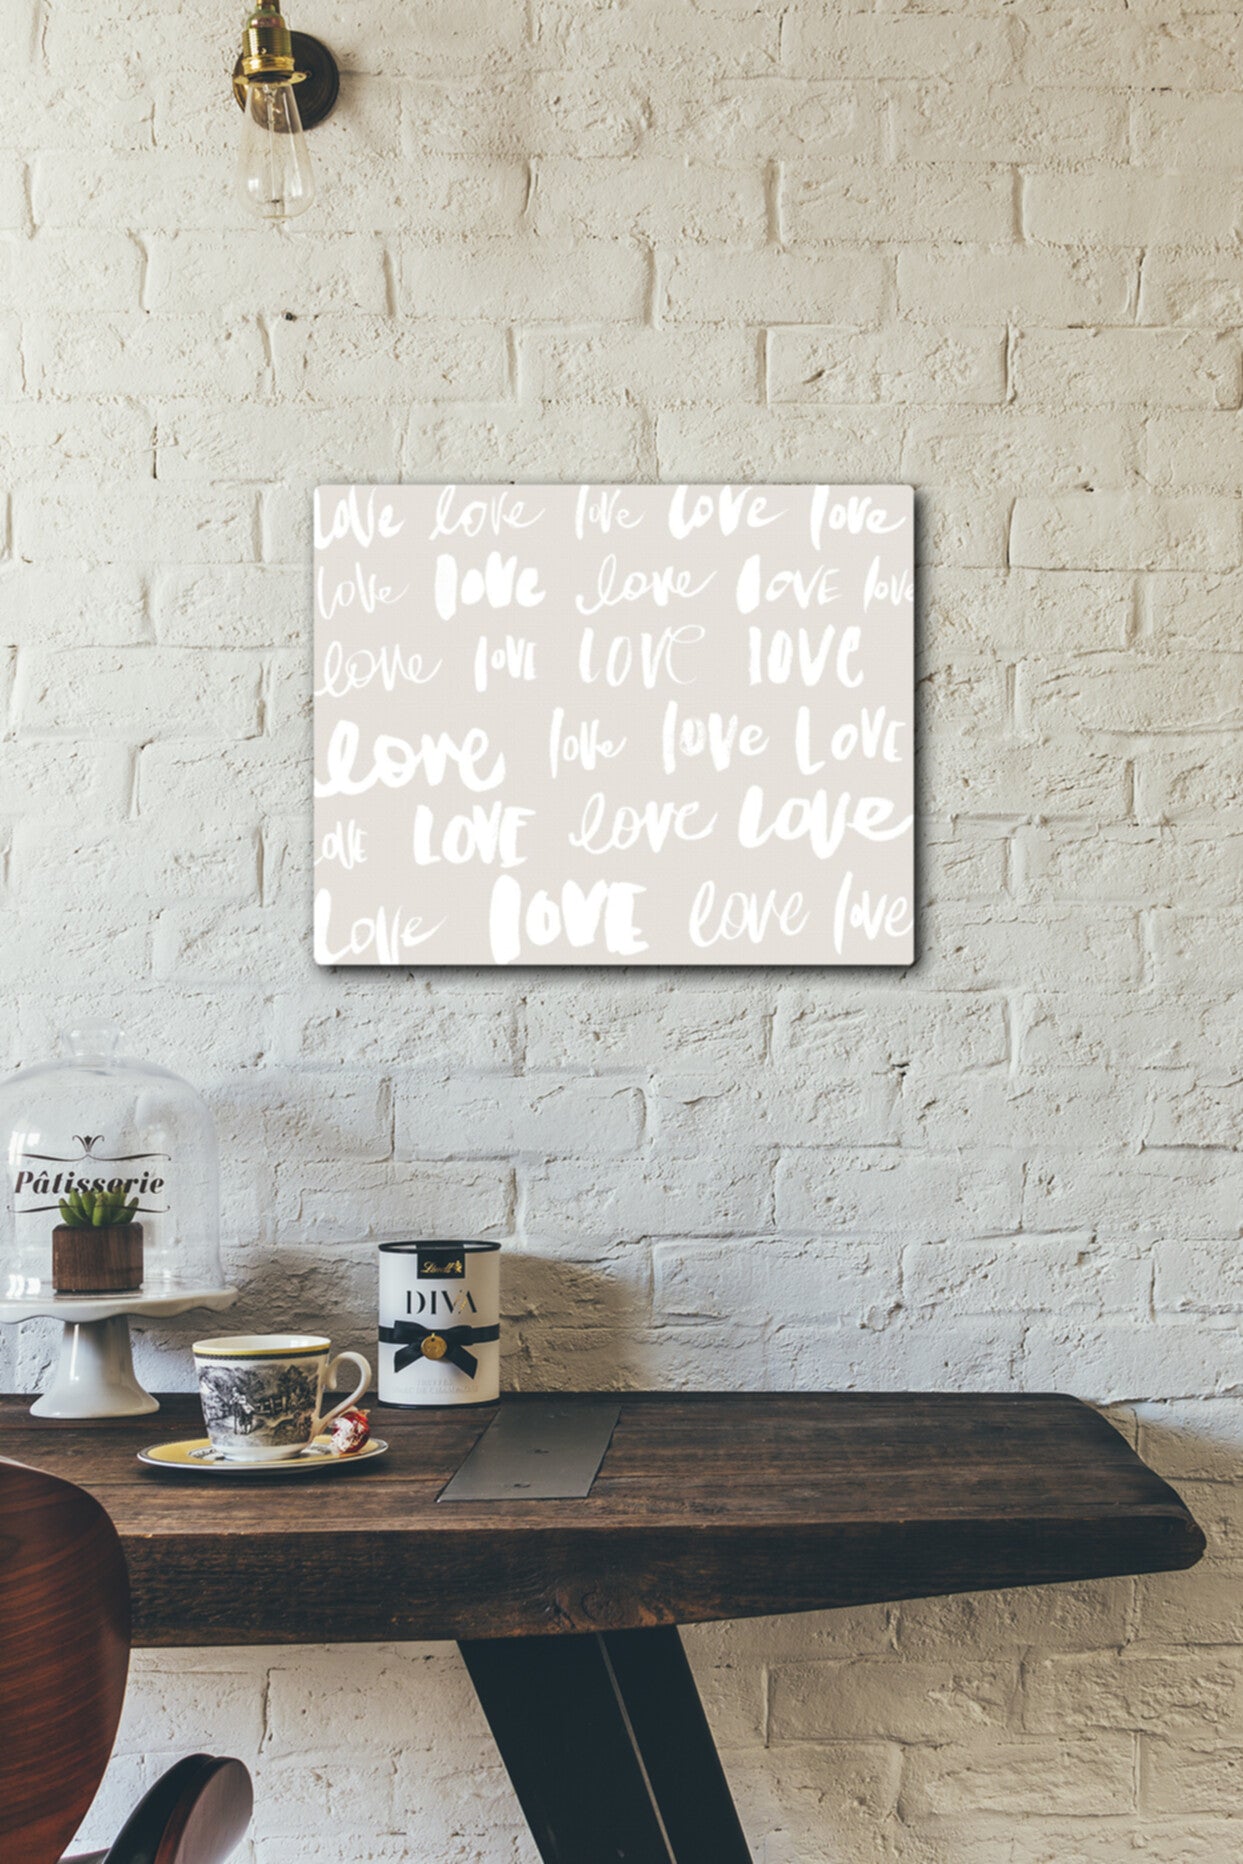 love love love love love
love love love love love
love love love love
love love love love
ove love love love
love love love love
Pâtisserie
Lindt
DIVA